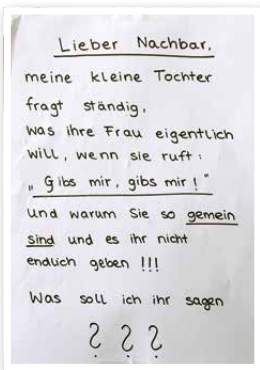 Lieber Nachbar,
meine kleine Tochter
fragt ständig,
was ihre Frau eigentlich
will, wenn sie ruft:
„Gibs mir, gibs mir!"
Und warum Sie so gemein
sind und es ihr nicht
endlich geben !!!
Was soll ich ihr sagen
? ? ?